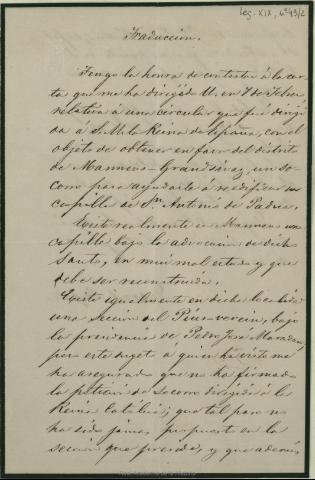 Leg-XIX, nº 43/2
Traduccion.
Tengo la honra de contestar á la car-
ta que me ha dirigido U. en 7 de Febro
relativa á una circular que fué dirigi-
da á S. M. la Reina de España, con el
objeto de obtener en favor del distrito
de Mannens-Grandsivaz, un so-
corro para ayudarle á reedificar su
capilla de Sn. Antonio de Padua.
Existe realmente en Mannens una
capilla bajo la advocacion de dicho
santo, en muy mal estado y que
debe ser reconstruida.
Existe igualmente en dicha localidad
una seccion del Pius-verein, bajo
la presidencia de Pedro José
pero este sugeto á quien he visto me
ha asegurado que no ha firmado
la peticion de socorro dirigida á la
Reina Católica; que tal paso no
ha sido jamas propuesto en la
seccion que preside, y que ademas